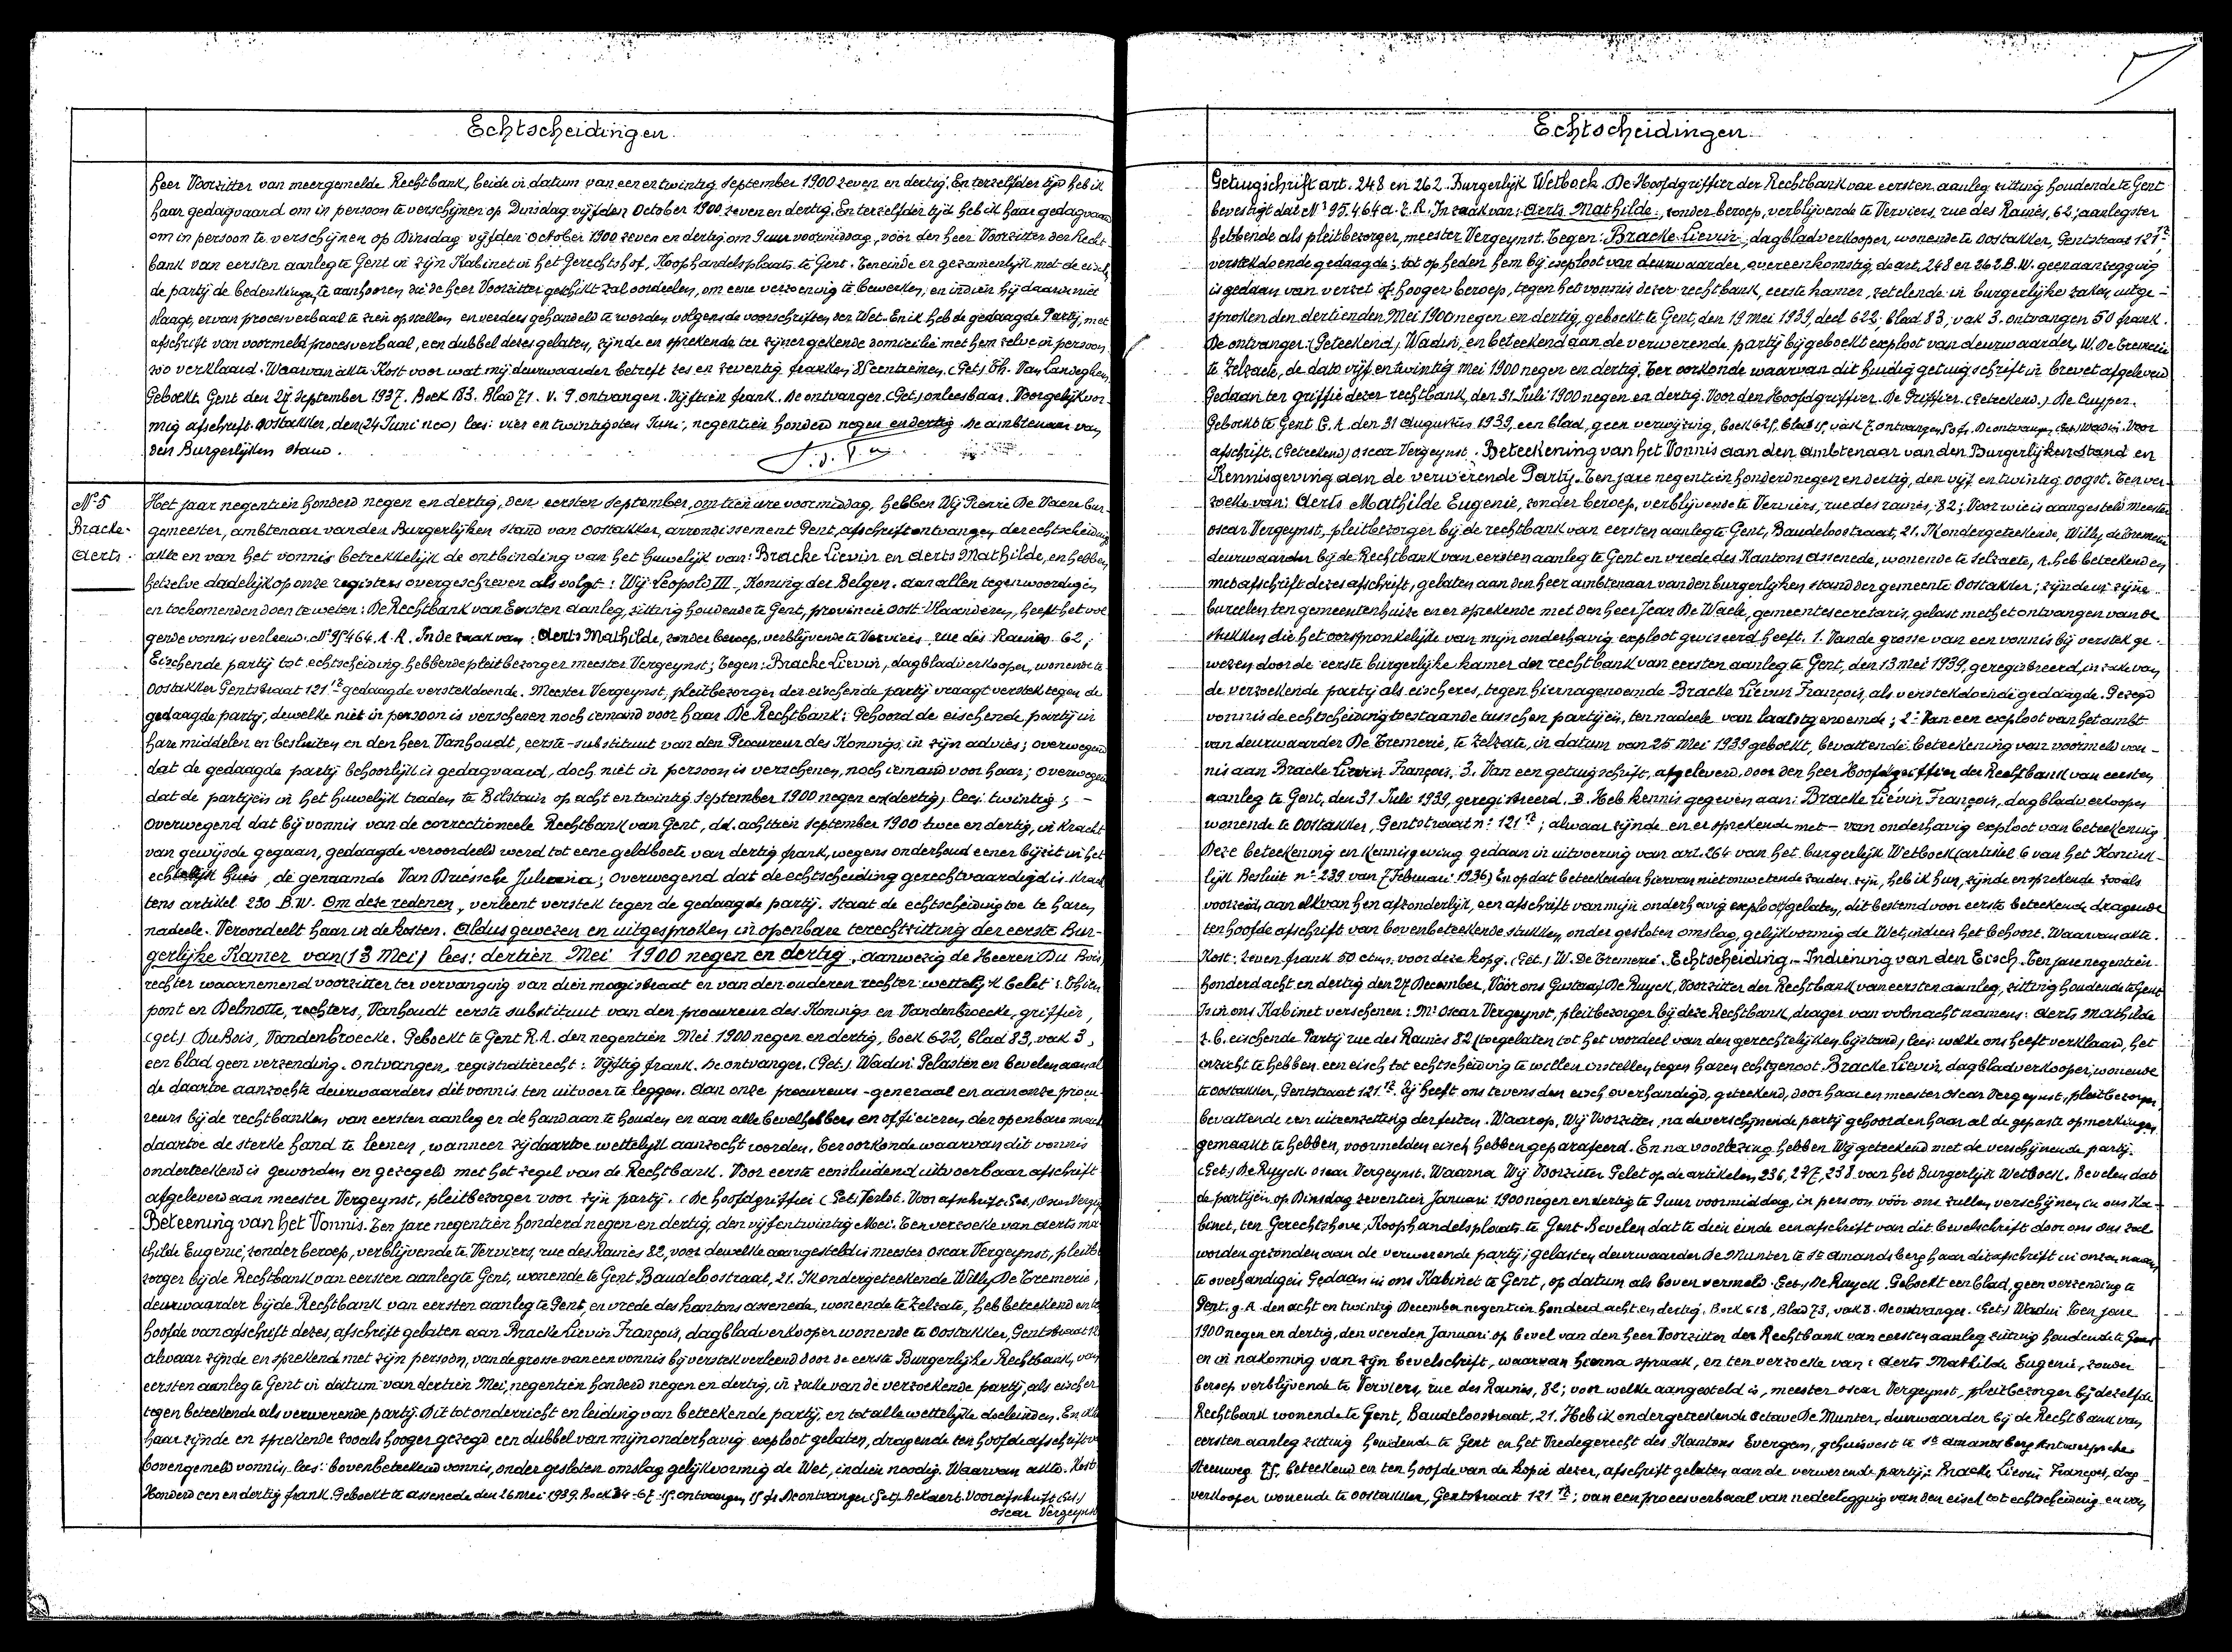 Echtscheidingen.
heer Voorzitter van meergemelde Rechtbank, beide in datum van een en twintig September 1900 zeven en dertig. En terzelfder tijd heb ik
haar gedagvaard om in persoon te verschijnen op Dinsdag vijfden October 1900 zeven en dertig. En terzelfder tijd heb ik haar gedagvaard
om in persoon te verschijnen op Dinsdag vijfden October 1900 zeven en dertig om 9 uur voormiddag, vóór den heer Voorzitter der Recht-
bank van eersten aanleg te Gent in zijn Kabinet in het Gerechtshof, Koophandelsplaats te Gent. Teneinde er gezamenlijk met de eisch
de partij de bedenkingen te aanhooren die de heer Voorzitter geschikt zal oordeelen, om eene verzoening te bewerken; en indien hij daarin niet
slaagt, ervan procesverbaal te zien opstellen en verders gehandeld te worden volgens de voorschriften der Wet. En ik heb de gedaagde Partij, met
afschrift van voormeld procesverbaal, een dubbel dezes gelaten, zijnde en sprekende ter zijner gekende domicilie met hem zelve in persoon
zoo verklaard. Waarvan akte Kost voor wat mij deurwaarder betreft zes en zeventig franken 85 centiemen. (Get) Th. Van Landeghem
Geboekt Gent den 27 September 1937. Boek 183. Blad 71. v. 9. ontvangen. Vijftien frank. De ontvanger. (Get.) onleesbaar. Voor gelijkvor-
mig afschrift. Oostakker, den (24 Juni neg) lees: vier en twintigsten Juni, negentien honderd negen en dertig. De ambtenaar van
den Burgerlijken stand.
N°5
Bracke-
Aerts.
Het jaar negentien honderd negen en dertig, den eersten September, om tien ure voormiddag, hebben Wij Pierre De Vaere bur-
gemeester, ambtenaar van den Burgerlijken stand van Oostakker, arrondissement Gent, afschrift ontvangen der echtscheiding
akte en van het vonnis betrekkelijk de ontbinding van het huwelijk van: Bracke Lievin en Aerts Mathilde, en hebben
hetzelve dadelijk op onze registers overgeschreven als volgt: Wij Leopold III, Koning der Belgen. Aan allen tegenwoordigen
en toekomenden doen te weten: De Rechtbank van Eersten aanleg, zitting houdende te Gent, provincie Oost-Vlaanderen, heeft het vol-
gende vonnis verleend. N° 95464 A.R. In de zaak van: Aerts Mathilde, zonder beroep, verblijvende te Verviers, rue des Rames 62;
Eischende partij tot echtscheiding hebbende pleitbezorger meester Vergeynst; Tegen: Bracke Lievin, dagbladverkooper, wonende te
Oostakker Gentstraat 121 gedaagde verstekdoende. Meester Vergeynst, pleitbezorger der eischende partij vraagt verstek tegen de
gedaagde partij, dewelke niet in persoon is verschenen noch iemand voor haar. De Rechtbank: Gehoord de eischende partij in
hare middelen en besluiten en den heer Vanhoudt, eerste-substituut van den Procureur des Konings, in zijn advies; overwegend
dat de gedaagde partij behoorlijk is gedagvaard, doch niet in persoon is verschenen, noch iemand voor haar; overwegend
dat de partijen in het huwelijk traden te Bilstain op acht en twintig September 1900 negen en (dertig) lees: twintig; -
Overwegend dat bij vonnis van de correctioneele Rechtbank van Gent, dd. achttien September 1900 twee en dertig, in kracht
van gewijsde gegaan, gedaagde veroordeeld werd tot eene geldboete van dertig frank, wegens onderhoud eener bijzit in het
echtelijk huis, de genaamde Van Driessche Juliana; overwegend dat de echtscheiding gerechtvaardigd is krach
tens artikel 230 B.W. Om deze redenen, verleent verstek tegen de gedaagde partij. Staat de echtscheiding toe te haren
nadeele. Veroordeelt haar in de kosten. Aldus gewezen en uitgesproken in openbare terechtzitting der eerste Bur-
gerlijke Kamer van (13 Mei) lees: dertien Mei 1900 negen en dertig. Aanwezig de Heeren Du Bois
rechter waarnemend voorzitter ter vervanging van dien magistraat en van den ouderen rechter wettelijk belet;
pont en Delmotte, rechters, Vanhoudt eerste substituut van den procureur des Konings en Vandenbroecke, griffier,
(get.) DuBois, Vandenbroecke. Geboekt te Gent R.A. den negentien Mei 1900 negen en dertig, boek 622, blad 83, vak 3,
een blad geen verzending. Ontvangen, registratierecht: Vijftig frank. De ontvanger. (Get.) Wadin. Gelasten en bevelen aan al
de daartoe aanzochte deurwaarders dit vonnis ten uitvoer te leggen. Aan onze procureurs-generaal en aan onze procu-
reurs bij de rechtbanken van eersten aanleg er de hand aan te houden en aan alle bevelhebbers en officieren der openbare macht
daartoe de sterke hand te leenen, wanneer zij daartoe wettelijk aanzocht worden. Ter oorkonde waarvan dit vonnis
onderteekend is geworden en gezegeld met het zegel van de Rechtbank. Voor eerste eensluidend uitvoerbaar afschrift
afgeleverd aan meester Vergeynst, pleitbezorger voor zijn partij. (De hoofdgriffier (Get) Voor afschrift. Get.) Oscar Vergeynst
Beteening van het Vonnis. Ten jare negentien honderd negen en dertig, den vijfentwintig Mei. Ten verzoeke van Aerts Ma
thilde Eugenie, zonder beroep, verblijvende te Verviers, rue des Rames 82, voor dewelke aangesteld is meester Oscar Vergeynst, pleitbe
zorger bij de Rechtbank van eersten aanleg te Gent, wonende te Gent Baudeloostraat, 21. Ik ondergeteekende Willy De Tremerie,
deurwaarder bij de Rechtbank van eersten aanleg te Gent, en vrede des kantons Assenede, wonende te Zelzate, heb beteekend en te
hoofde van afschrift dezes, afschrift gelaten aan Bracke Lievin François, dagbladverkooper wonende te Oostakker, Gentstraat 121
alwaar zijnde en sprekend met zijn persoon, van de grosse van een vonnis bij verstek verleend door de eerste Burgerlijke Rechtbank, van
eersten aanleg te Gent in datum van dertien Mei, negentien honderd negen en dertig, in zake van de verzoekende partij, als eischer
tegen beteekende als verwerende partij. Dit tot onderricht en leiding van beteekende partij, en tot alle wettelijke doeleinden. En ik
haar zijnde en sprekende zooals hooger gezegd een dubbel van mijn onderhavig exploot gelaten, dragende ten hoofde afschrift v
bovengemeld vonnis lees: bovenbeteekend vonnis, onder gesloten omslag gelijkvormig de Wet, indien noodig. Waarvan akte. Kost
Honderd een en dertig frank. Geboekt te Assenede den 26 Mei 1939. Boek 34-67-15. ontvangen 15 fr. De ontvanger (get.) Bekaert. Voor afschrift (Get.)
Oscar Vergeynst
Echtscheidingen
Getuigschrift art. 248 en 262. Burgerlijk Wetboek. De Hoofdgriffier der Rechtbank van eersten aanleg zitting houdende te Gent
bevestigt dat N° 95.464 A.R. In zaak van: Aerts Mathilde, zonder beroep, verblijvende te Verviers, rue des Rames, 62; aanlegster
hebbende als pleitbezorger, meester Vergeynst. Tegen: Bracke Lievin, dagbladverkooper, wonende te Oostakker, Gentstraat 121
verstekdoende gedaagde; tot op heden hem bij exploot van deurwaarder, overeenkomstig de art. 248 en 262 B.W. geen aanzegging
is gedaan van verzet of hooger beroep, tegen het vonnis dezer rechtbank, eerste kamer, zetelende in burgerlijke zaken, uitge-
sproken den dertienden Mei 1900 negen en dertig, geboekt te Gent, den 19 Mei 1939, deel 622. blad 83, vak 3. ontvangen 50 frank.
De ontvanger. (Geteekend) Wadin, en beteekend aan de verwerende partij bij geboekt exploot van deurwaarder, W. De Tremerie
te Zelzate, de dato vijf en twintig Mei 1900 negen en dertig. Ter oorkonde waarvan dit huidig getuigschrift in brevet afgeleverd
Gedaan ter griffie dezer rechtbank, den 31 Juli 1900 negen en dertig. Voor den Hoofdgriffier. De Griffier. (Geteekend.) De Cuyper.
Geboekt te Gent G.A. den 31 Augustus 1939, een blad, geen verwijzing, boek 625, blad 15, vak 7. ontvangen 50 fr. De ontvanger (Get) Wadin. Voor
afschrift. (Geteekend) Oscar Vergeynst. Beteekening van het Vonnis aan den Ambtenaar van den Burgerlijken Stand en
Kennisgeving aan de verwerende Partij. Ten jare negentien honderd negen en dertig, den vijf en twintig oogst. Ten ver-
zoeke van: Aerts Mathilde Eugenie, zonder beroep, verblijvende te Verviers, rue des rames, 82; Voor wie is aangesteld meester
Oscar Vergeynst, pleitbezorger bij de rechtbank van eersten aanleg te Gent, Baudeloostraat, 21. Ik ondergeteekende, Willy de Tremerie
deurwaarder bij de Rechtbank van eersten aanleg te Gent en vrede des Kantons Assenede, wonende te Zelzate, 1. heb beteekend en
met afschrift dezes afschrift, gelaten aan den heer ambtenaar van den burgerlijken stand der gemeente Oostakker; zijnde in zijne
bureelen ten gemeentenhuize en er sprekende met den heer Jean De Waele, gemeentesecretaris, gelast met het ontvangen van de
stukken die het oorspronkelijke van mijn onderhavig exploot geviseerd heeft. 1. Van de grosse van een vonnis bij verstek ge-
wezen door de eerste burgerlijke kamer der rechtbank van eersten aanleg te Gent, den 13 Mei 1939, geregistreerd, in zake van
de verzoekende partij als eischeres, tegen hiernagenoemde Bracke Lievin François, als verstekdoende gedaagde. Gezegd
vonnis de echtscheiding toestaande tusschen partijen, ten nadeele van laatstgenoemde; 2° Van een exploot van het ambt
van deurwaarder De Tremerie, te Zelzate, in datum van 25 Mei 1939 geboekt, bevattende beteekening van voormeld von-
nis aan Bracke Lievin François, 3. Van een getuigschrift, afgeleverd door den heer Hoofdgriffier der Rechtbank van eersten
aanleg te Gent, den 31 Juli 1939, geregistreerd. B. Heb kennis gegeven aan: Bracke Liévin François, dagbladverkooper
wonende te Oostakker, Gentstraat n° 121; alwaar zijnde en er sprekende met - van onderhavig exploot van beteekening
Deze beteekening en kennisgeving gedaan in uitvoering van art. 264 van het burgerlijk Wetboek (artikel 6 van het Konink-
lijk Besluit n° 239 van 7 Februari 1936) En opdat beteekenden hiervan niet onwetende zouden zijn, heb ik hun, zijnde en sprekende zooals
voorzeid, aan elk van hen afzonderlijk, een afschrift van mijn onderhavig exploot gelaten, dit bestemd voor eerste beteekende dragende
ten hoofde afschrift van bovenbeteekende stukken, onder gesloten omslag, gelijkvormig de Wet, indien het behoort. Waarvan akte.
Kost: zeven frank 50 ctmn. voor deze kopij. (Get.) W. De Tremerie. Echtscheiding. - Indiening van den Eisch. Ten jare negentien
honderd acht en dertig den 27 December, Vóór ons Gustaaf De Ruyck, Voorzitter der Rechtbank van eersten aanleg, zitting houdende te Gent
Is in ons Kabinet verschenen: Mr Oscar Vergeynst, pleitbezorger bij deze Rechtbank, drager van volmacht namens: Aerts Mathilde
z.b. eischende Partij rue des Rames 82 (toegelaten tot het voordeel van den gerechtelijken bijstand) lees: welke ons heeft verklaard, het
inzicht te hebben een eisch tot echtscheiding te willen instellen tegen haren echtgenoot Bracke Lievin, dagbladverkooper, wonende
te Oostakker, Gentstraat 121. Zij heeft ons tevens den eisch overhandigd, geteekend, door haar en meester Oscar Vergeynst, pleitbezorger,
bevattende een uiteenzetting der feiten. Waarop, Wij Voorzitter, na de verschijnende partij gehoord en haar al de gepaste opmerkingen
gemaakt te hebben, voormelden eisch hebben geparafeerd. En na voorlezing hebben Wij geteekend met de verschijnende partij.
(Get.) De Ruyck. Oscar Vergeynst. Waarna Wij Voorzitter Gelet op de artikelen 236, 237, 238 van het Burgerlijk Wetboek. Bevelen dat
de partijen op Dinsdag zeventien Januari 1900 negen en dertig te 9 uur voormiddag, in persoon vóór ons zullen verschijnen in ons Ka-
binet, ten Gerechtshove, Koophandelsplaats te Gent. Bevelen dat te dien einde een afschrift van dit bevelschrift door ons zal
worden gezonden aan de verwerende partij; gelasten deurwaarder De Munter te St Amandsberg haar dit afschrift in onzen naam
te overhandigen Gedaan in ons Kabinet te Gent, op datum als boven vermeld. (Get.) De Ruyck. Geboekt een blad, geen verzending te
Gent. g.A. den acht en twintig December negentien honderd acht en dertig. Boek 618, Blad 73, vak 8. De ontvanger. (Get.) Wadin. Ten jare
1900 negen en dertig, den vierden Januari op bevel van den heer Voorzitter der Rechtbank van eersten aanleg zitting houdende te Gent
en in nakoming van zijn bevelschrift, waarvan hierna spraak, en ten verzoeke van: Aerts Mathilde Eugenie, zonder
beroep verblijvende te Verviers, rue des Rames, 82; voor welke aangesteld is, meester Oscar Vergeynst, pleitbezorger bij dezelfde
Rechtbank wonende te Gent, Baudeloostraat, 21. Heb ik ondergeteekende Octave De Munter, deurwaarder bij de Rechtbank van
eersten aanleg zitting houdende te Gent en het Vredegerecht des Kantons Evergem, gehuisvest te St Amandsberg Antwerpsche
Steenweg 75, beteekend en ten hoofde van de kopie dezer, afschrift gelaten aan de verwerende partij: Bracke Lievin François, dag-
verkooper wonende te Oostakker, Gentstraat 121; van een procesverbaal van nederlegging van den eisch tot echtscheiding en van